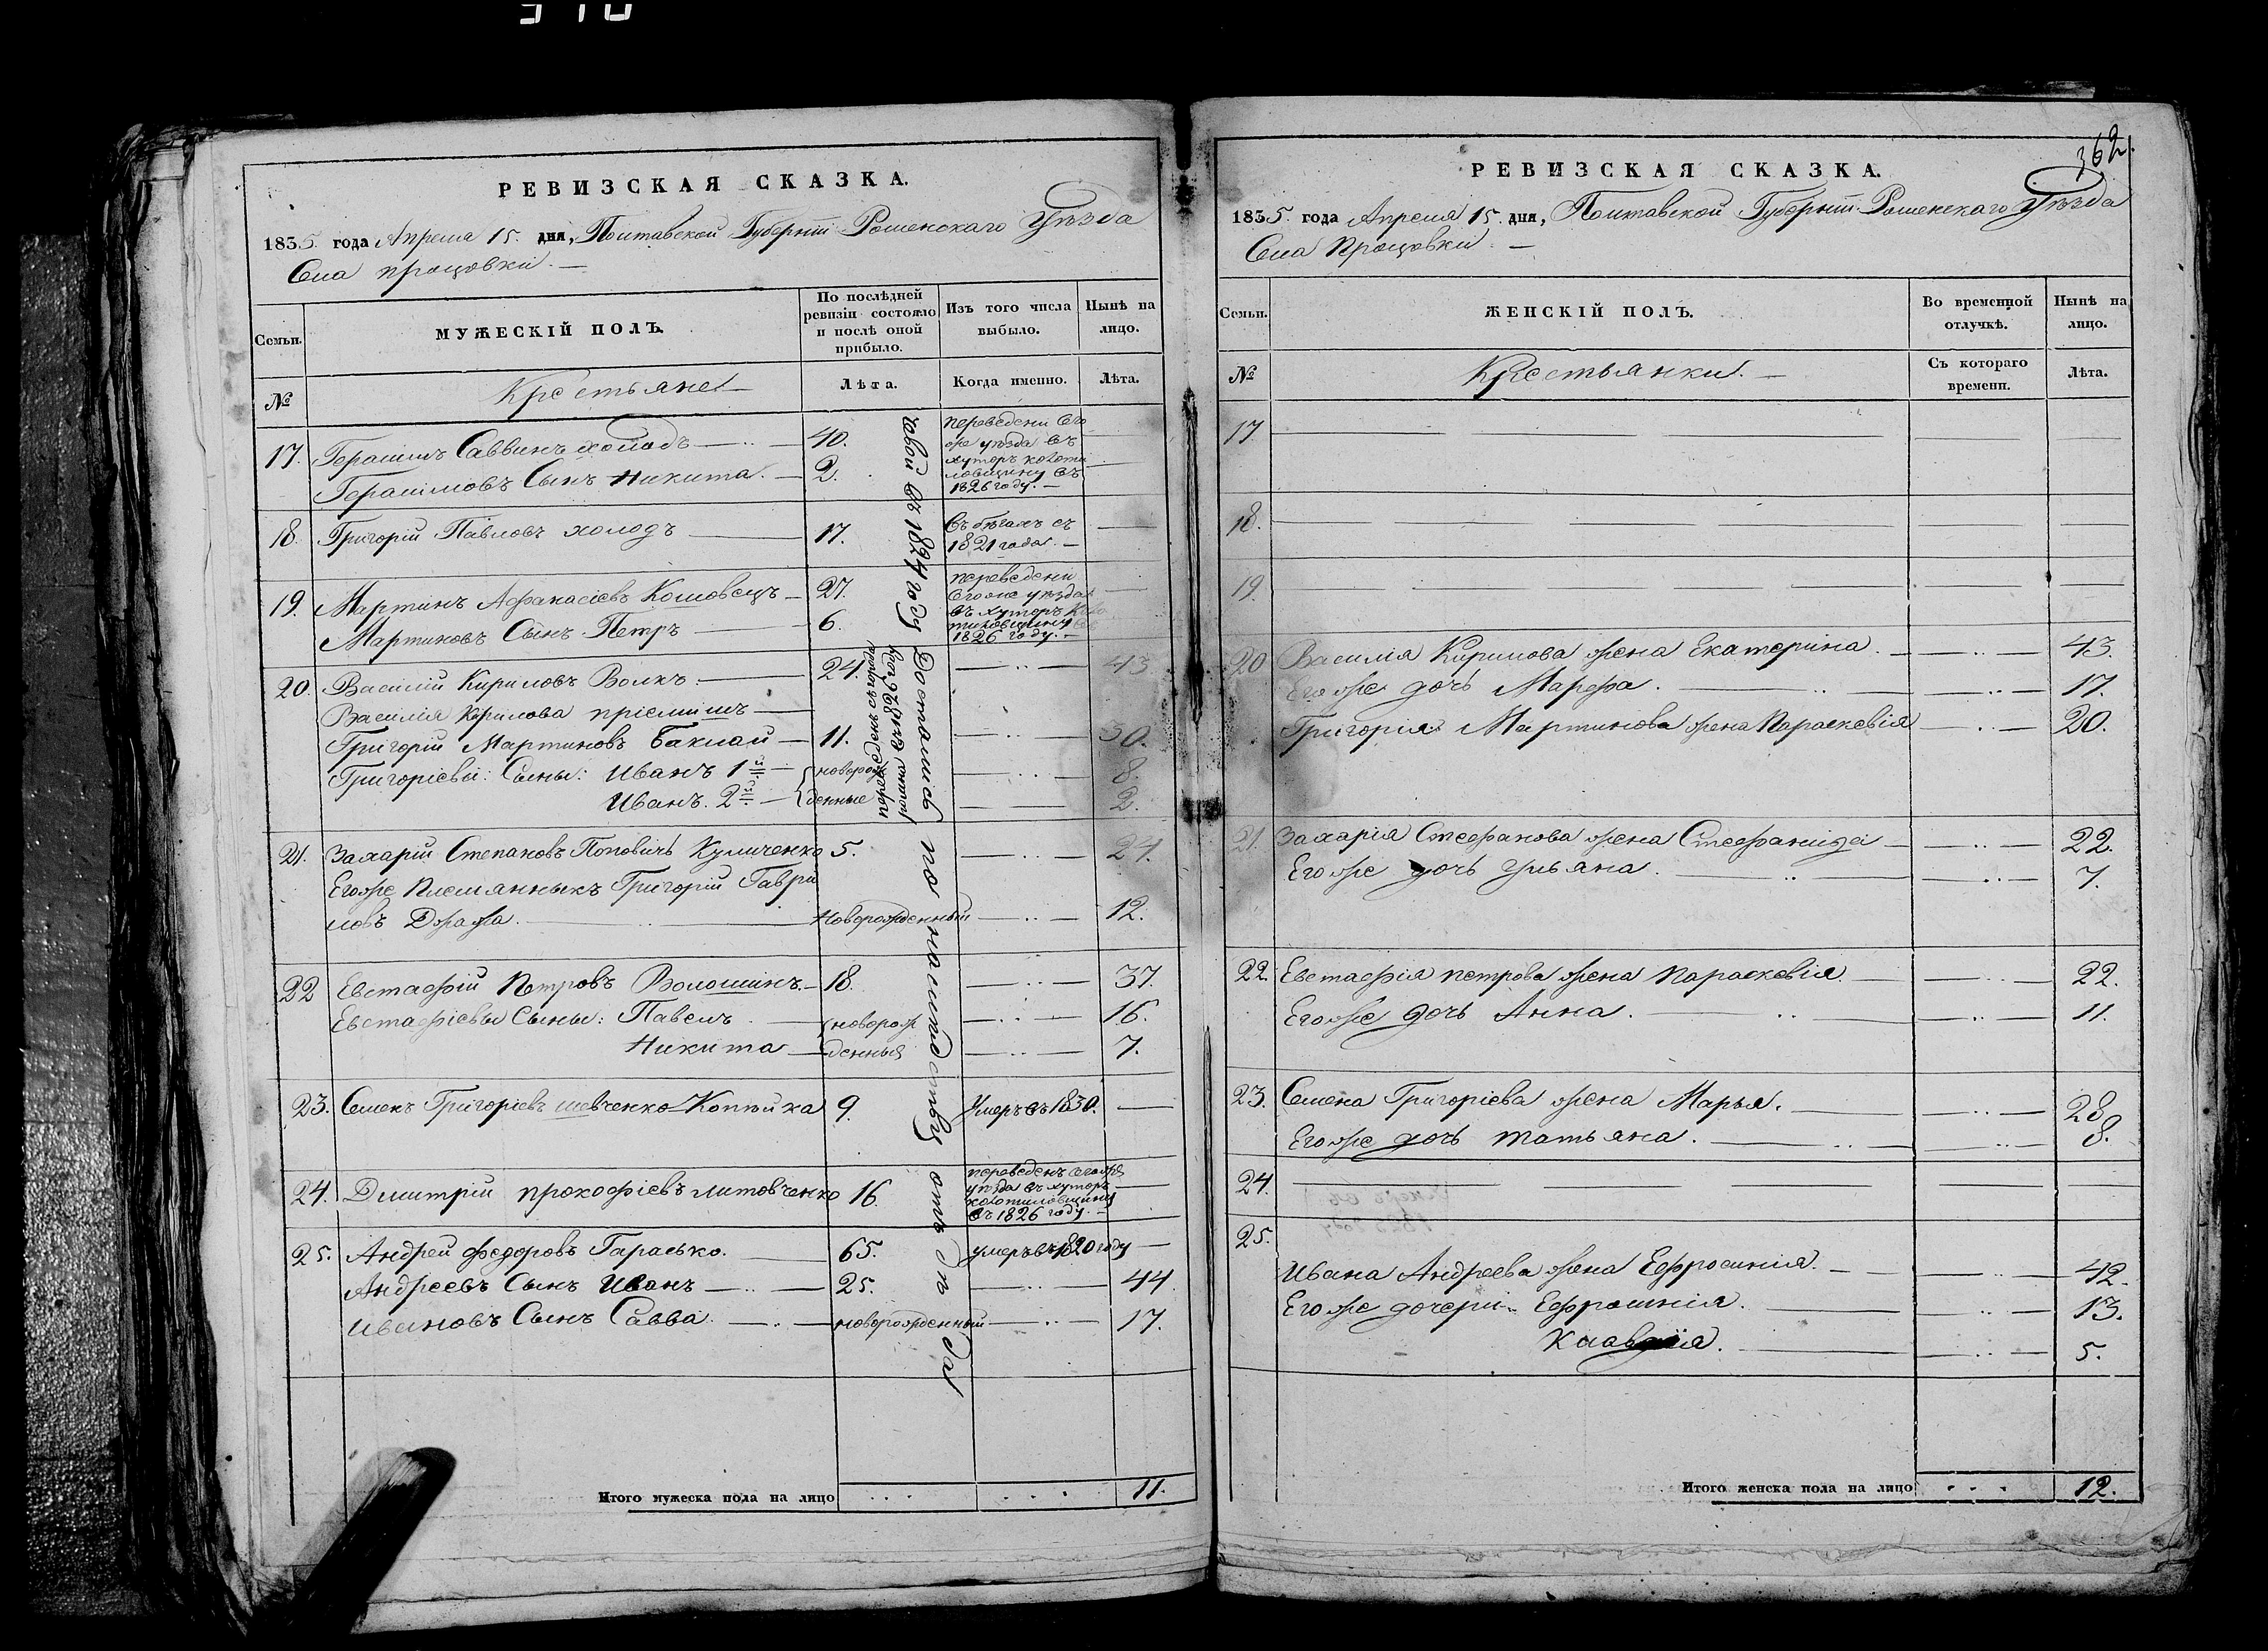 362.
РЕВИЗСКАЯ СКАЗКА.
1835. года Апреля 15. дня, Полтавской Губерніи Роменскаго Уѣзда
Села процовки. —
Семьи. МУЖЕСКІЙ ПОЛЪ. По послѣдней ревизіи состояло и послѣ оной прибыло. Изъ того числа выбыло. Нынѣ на лицо.
№ Крестьяне Лѣта. Когда именно. Лѣта.
17. Герасимъ Саввинъ холодъ 40. переведени Его
же уѣзда въ
Герасимовъ Сынъ Никита. 2. хуторъ
въ
1826 году. —
18. Григорій Павловъ холодъ 17. Въ бѣгахъ съ
1821 года. —
19. Мартинъ Афанасіевъ 27. переведени
Егоже уѣзда
Мартиновъ Сынъ Петръ 6. въ хуторъ
1826 году. —
20. Василій Кириловъ Волкъ. 24. 43
Василія Кирилова пріемишъ
Григорій Мартиновъ Баклай 11. 30.
Григоріеви: Сыны: Иванъ 1й новорож 8.
Иванъ. 2й денные 2.
21. Захарій Степановъ Поповичъ Куличенко 5. 24.
Егоже Племянныкъ Григорій Гаври
ловъ Новорожденный 12.
22 Евстафій Петровъ Волошинъ. 18. 37.
Евстафіевы Сыны: Павелъ новорож 16.
Никита денныя 7.
23. Семенъ Григоріевъ шевченко 9. Умеръ въ 1830.
24. Дмитрій прокофіевъ литовченко 16. переведенъ егоже
уѣзда въ хуторъ
въ 1826 году. —
25. Андрей федоровъ Гарасько. 65. умеръ въ 1820 году
Андреевъ Сынъ Иванъ 25. 44
Ивановъ Сынъ Савва. новорожденный 17.
Достались по наслидству отъ
въ 1824 году
переведенъ съ города
Итого мужеска пола на лицо 11.
РЕВИЗСКАЯ СКАЗКА.
1835. года Апреля 15. дня, Полтавской Губерніи Роменскаго Уѣзда
Села Процовки. —
Семьи. ЖЕНСКІЙ ПОЛЪ. Во временной отлучкѣ. Нынѣ на лицо.
№ Крестьянки. — Съ котораго времени. Лѣта.
17
18.
19.
20 Василія Кирилова жена Екатерина. 43.
Егоже дочь Марфа. 17.
Григорія Мартинова жена Параскевія 20.
21. Захарія Стефанова жена Стефанида 22.
Егоже дочь Ульяна. 7.
22. Евстафія петрова жена Параскевія. 22.
Егоже дочь Анна. 11.
23. Семена Григоріева жена Марья. 28
Егоже дочь Татьяна. 8.
24.
25.
Ивана Андреева жена Ефросинія. 42.
Егоже дочери Ефросинія. 13.
Клавдія. 5.
Итого женска пола на лицо 12.